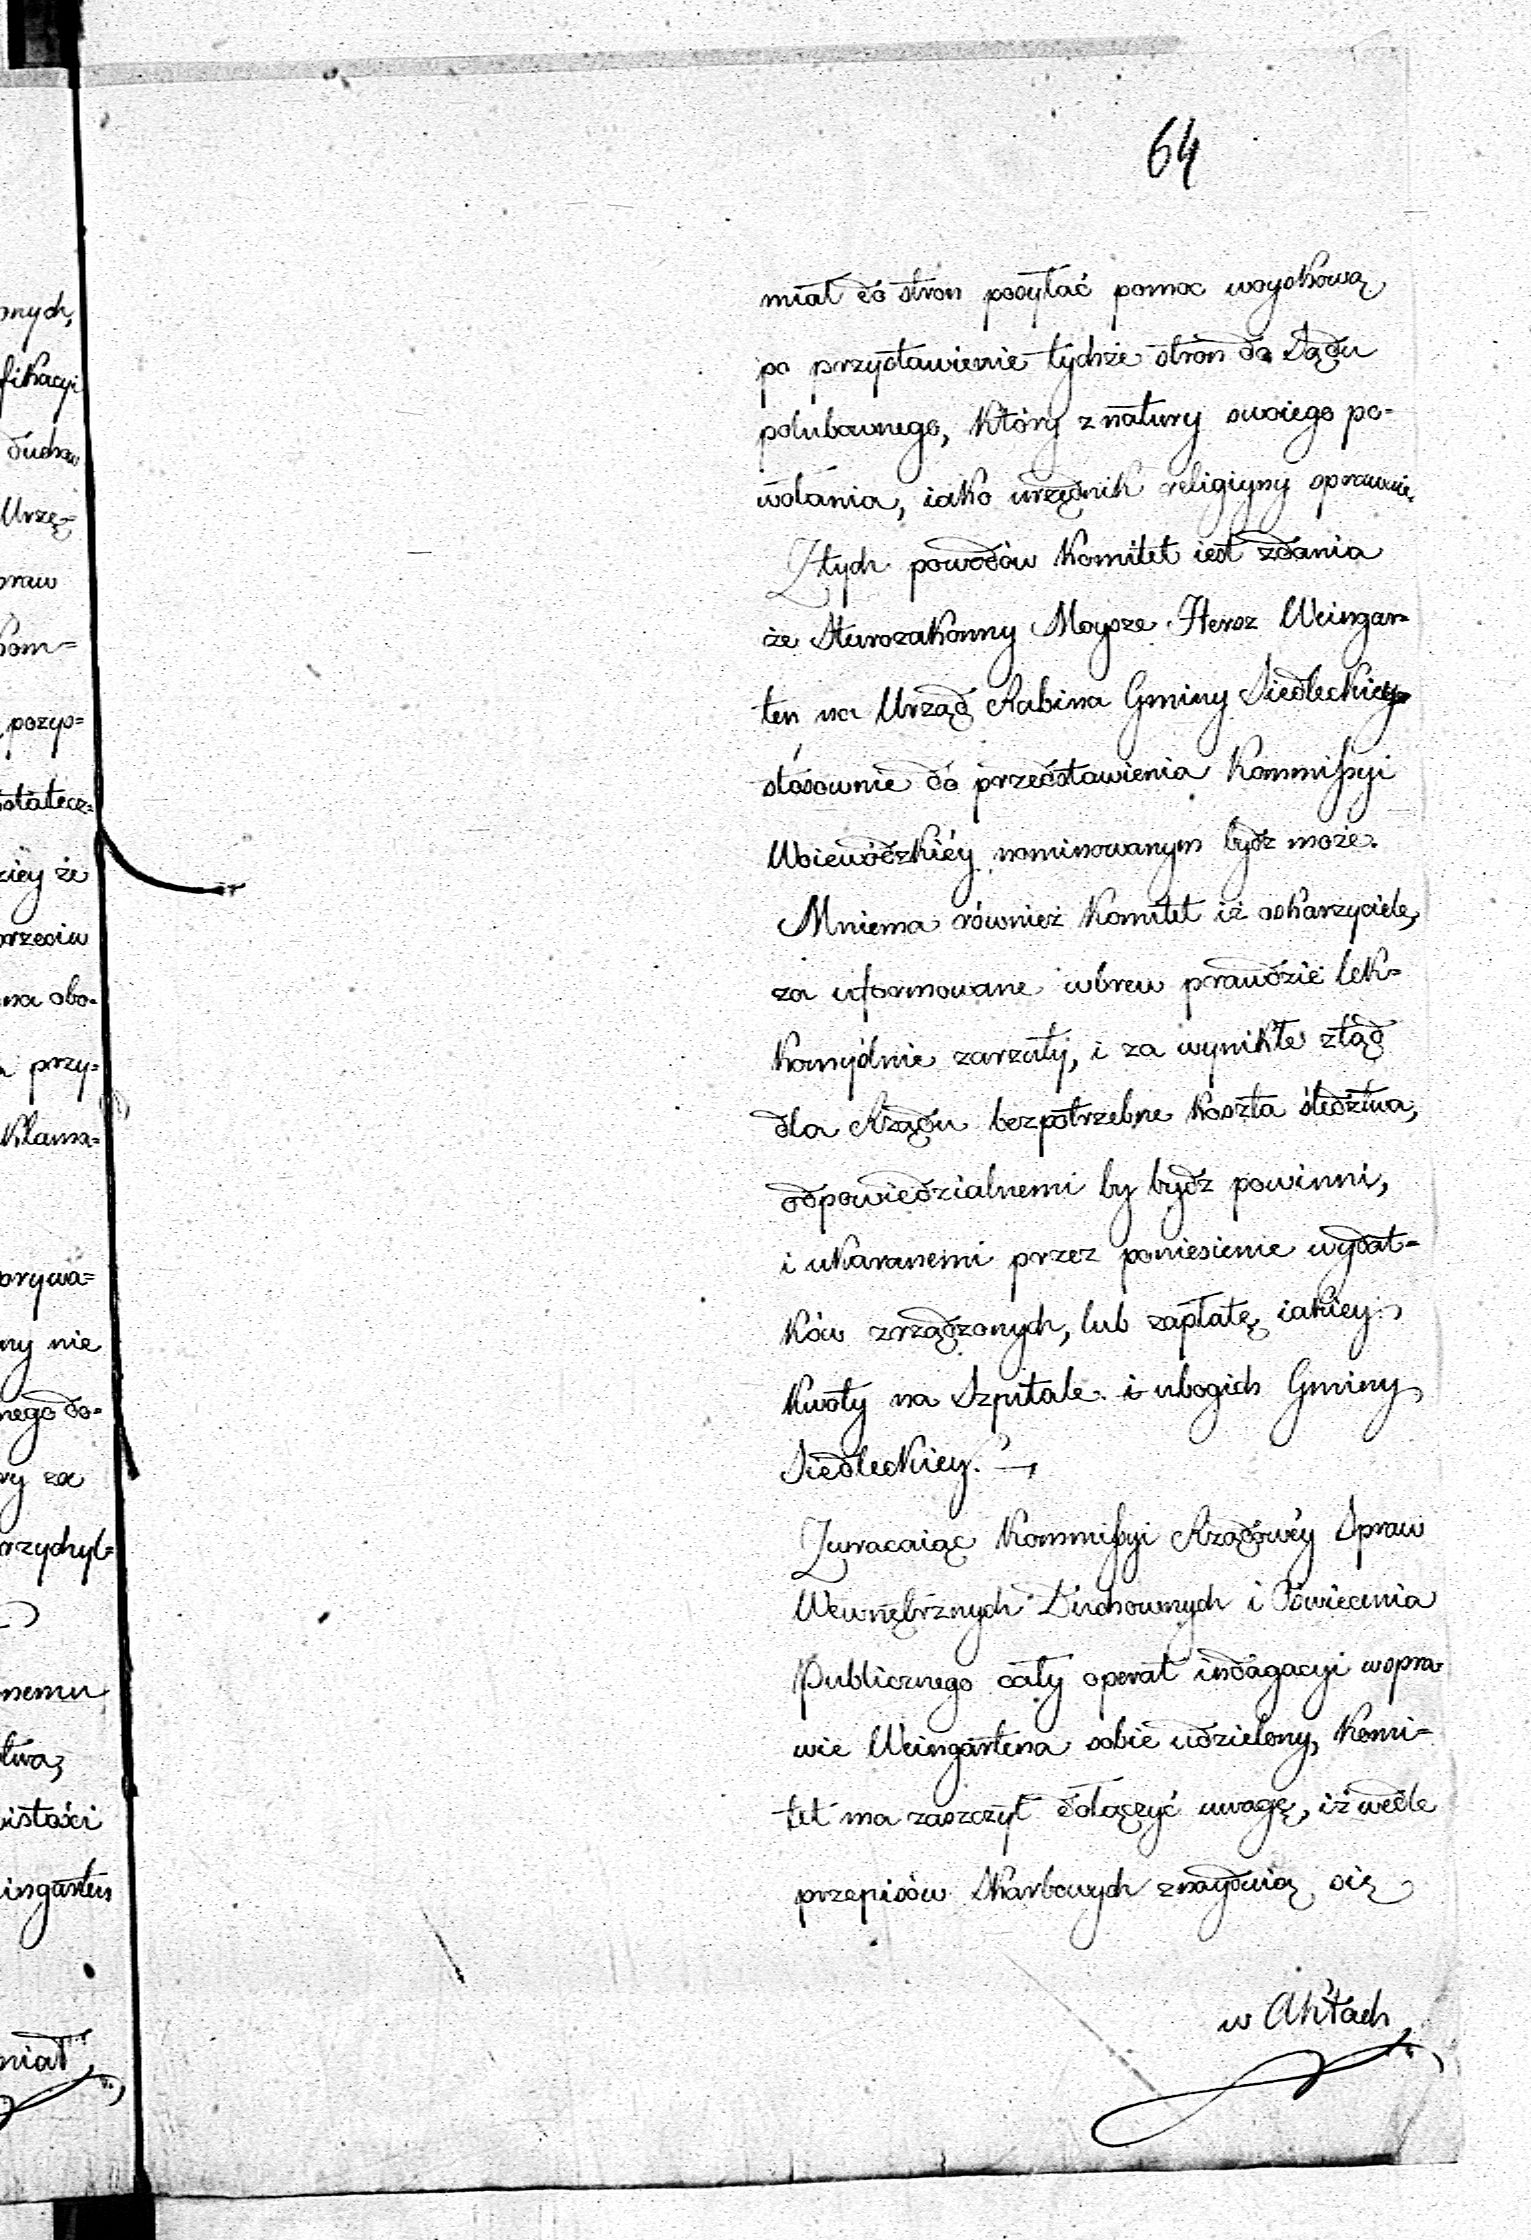 64
onych,
fikacyi
duchow
Urzę=
praw
kom=
pozys=
ostatecz=
ciey że
przeciw
na obo-
przy=
Klama=
prywa=
ny nie
nego do=
wy za
rzychyl=
nemu
stwa,
istości
ingarten
miał
miał do stron posyłać pomoc woyskową
po przystawienie tychże stron do Sądu
polubownego, który z natury swoiego po=
wołania, iako urzędnik religiyny sprawuie.
Z tych powodów Komitet iest zdania
że Starozakonny Moysze Hersz Weingar=
ten na Urząd Rabina Gminy Siedleckiey
stósownie do przedstawienia Kommissyi
Woiewódzkiéy nominowanym bydź może.
Mniema również Komitet iż oskarzyciele,
za uformowane wbrew prawdzie lek=
komyślnie zarzuty, i za wynikłe ztąd
dla Rządu bezpotrzebne koszta śledztwa,
odpowiedzialnemi by bydź powinni,
i ukaranemi przez poniesienie wydat=
ków zrządzonych, lub zapłatę iakiey
kwoty na Szpitale i ubogich Gminy
Siedleckiey.
Zwracaiąc Kommissyi Rządowéy Spraw
Wewnętrznych Duchownych i Oświecenia
Publicznego cały operat indagacyi w spra
wie Weingartena sobie udzielony, Komi=
tet ma zaszczyt dołączyć uwagę, iż wedle
przepisów Skarbowych znayduią się
w Aktach